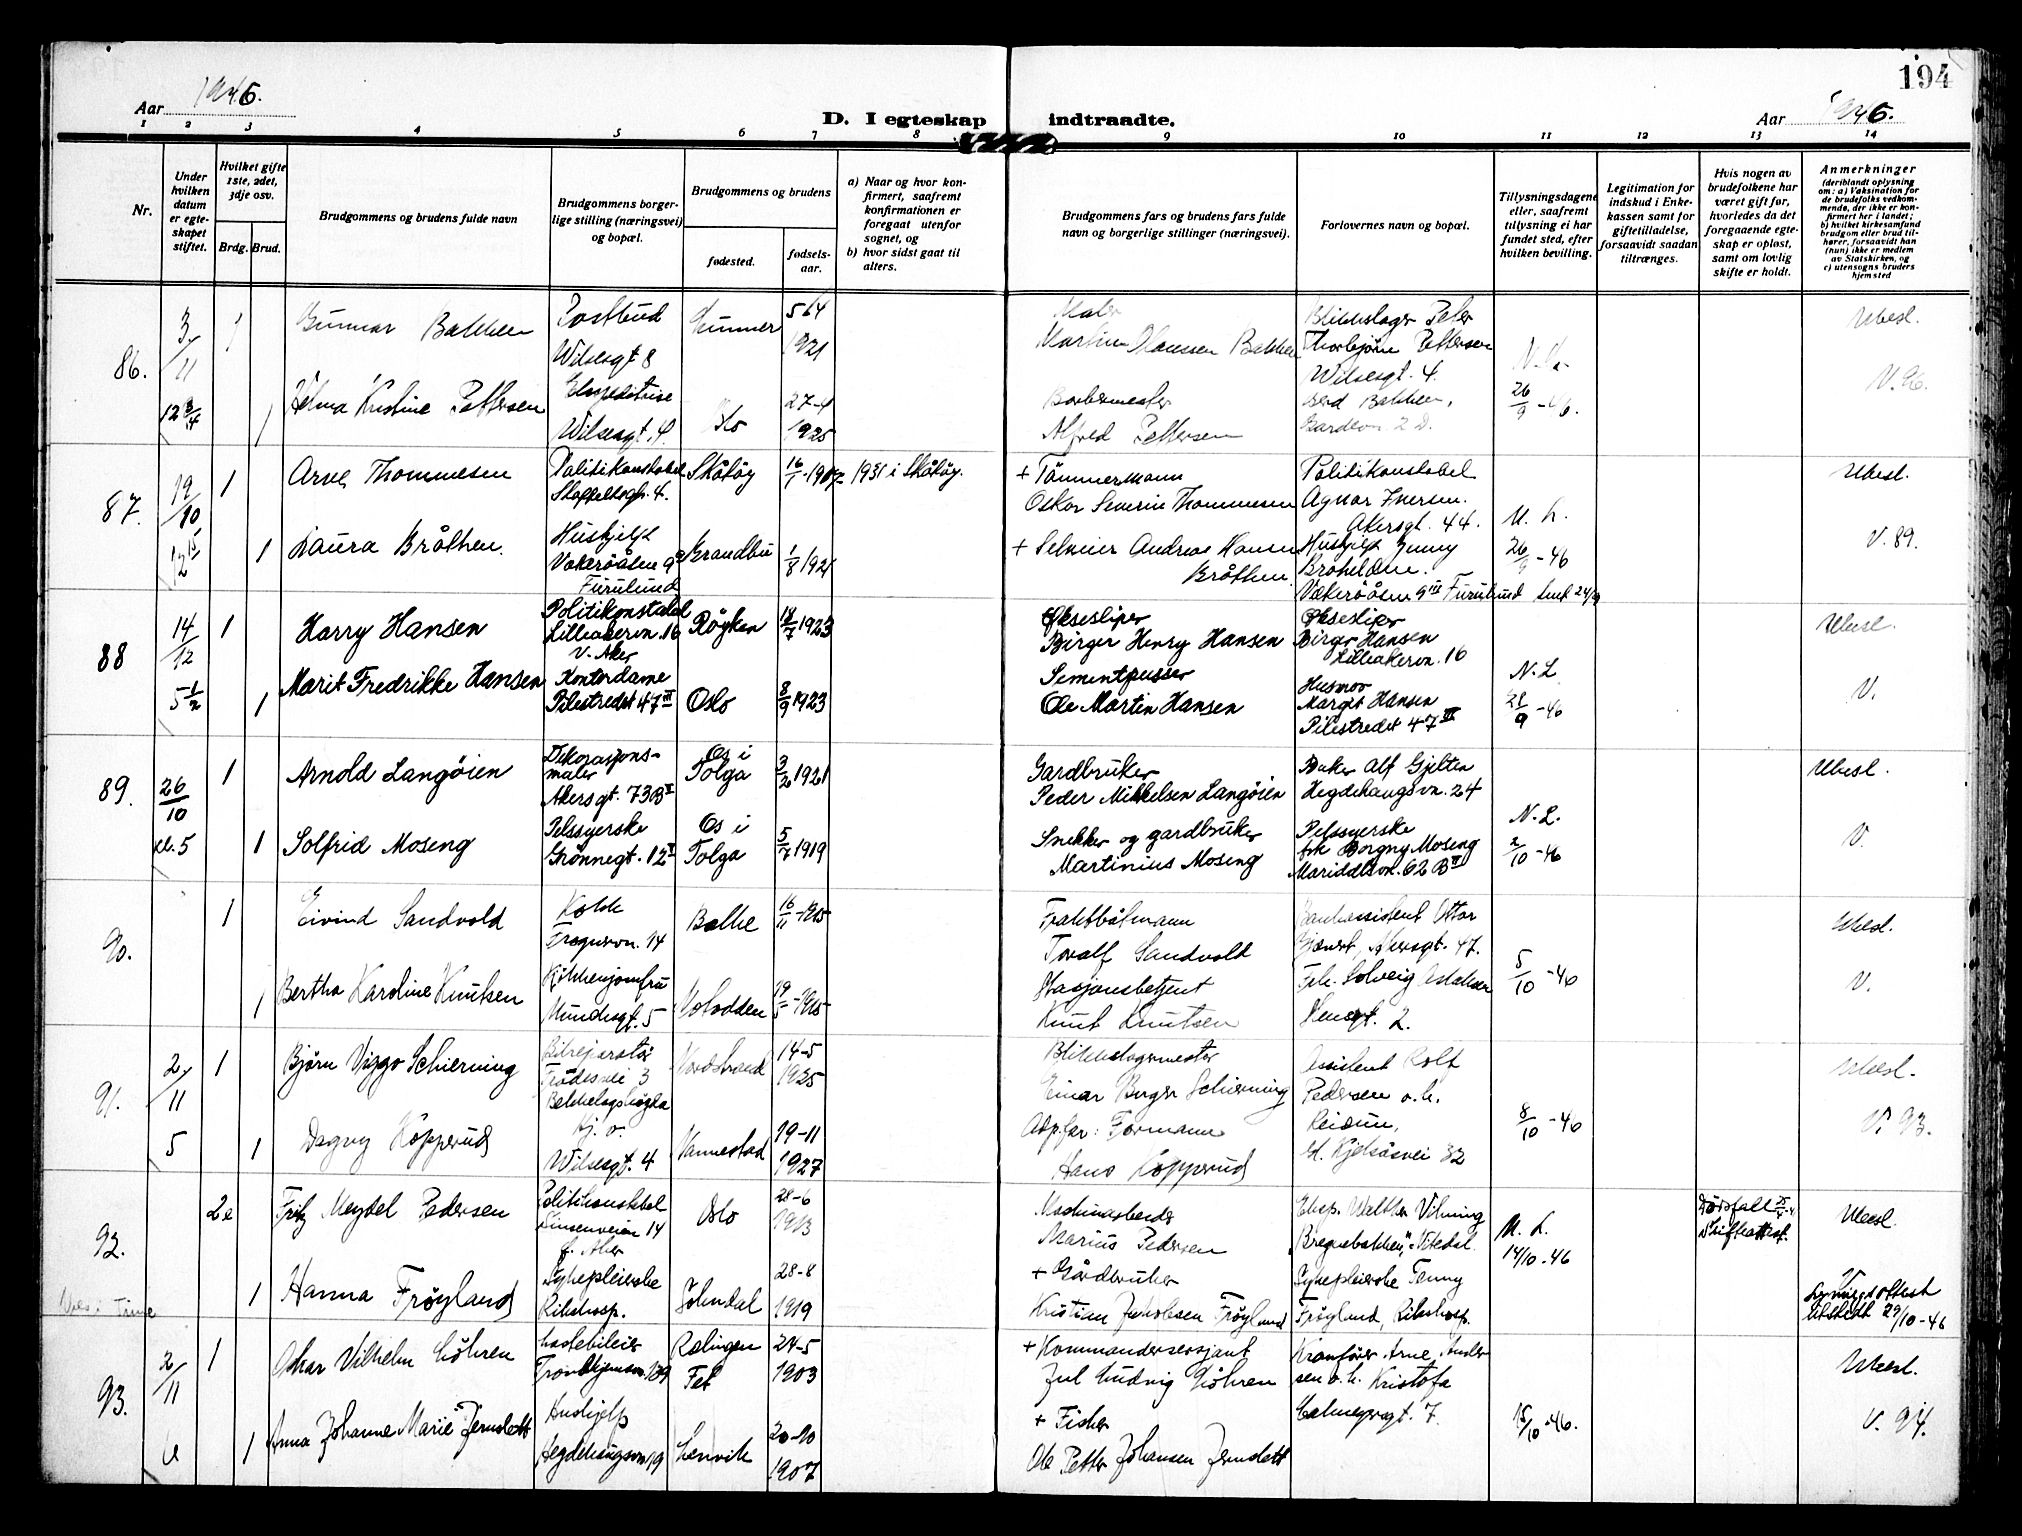 194
Aar 1946.
D. I egteskap indtraadte.
Aar 1946.
1 2 3 4 5 6 7 8 9 10 11 12 13 14
Nr.
Under hvilken datum er egteskapet stiftet.
Hvilket gifte 1ste, 2det, 3dje osv.
Brdg. Brud.
Brudgommens og brudens fulde navn
Brudgommens borgerlige stilling (næringsvei) og bopæl.
Brudgommens og brudens
fødested.
fødselsaar.
a) Naar og hvor konfirmert, saafremt konfirmationen er foregaat utenfor sognet, og
b) hvor sidst gaat til alters.
Brudgommens fars og brudens fars fulde navn og borgerlige stillinger (næringsvei).
Forlovernes navn og bopæl.
Tillysningsdagene eller, saafremt tillysning ei har fundet sted, efter hvilken bevilling.
Legitimation for indskud i Enkekassen samt for giftetilladelse, forsaavidt saadan tiltrænges.
Hvis nogen av brudefolkene har været gift før, hvorledes da det foregaaende egteskap er opløst, samt om lovlig skifte er holdt.
Anmerkninger
(deriblandt oplysning om: a) Vaksination for de brudefolks vedkommende, der ikke er konfirmert her i landet;
b) hvilket kirkesamfund brudgom eller brud tilhører, forsaavidt han (hun) ikke er medlem av Statskirken, og
c) utensogns bruders hjemsted
86.
3/11
12 3/4
1
Gunnar Bakken
Postbud
Wilsesgt 8
1921
Maler
Martin Hanssen Bakken
Blikkslager Peter
Thorbjørn Pettersen
Wilsesgt. 4.
Ubesl.
1
Helma Kristine Pettersen
Ekspeditrise
Wilsesgt. 4.
Oslo
27-4
1925
Barbermester
Alfred Pettersen
Gerd Bakken,
26/9 - 46.
V. 96.
87.
19/10
1
Arne Thommesen
Politikonstabel
Skåtøy
16/1
1931 i Skåtøy.
+ Tømmermann
Oskar Severin Thommesen
Politikonstabel
Agnar Iversen.
Akersgt. 44.
Ubesl.
1
Laura Bråthen.
Hushjelp
Vækerøåsen 9
Furulund
Brandbu
1/8 1921
+ Selmer Andreas Hansen
Bråthen.
Hushjelp Jenny
Vækerøåsen 9 Furulund
26/9 - 46
V. 89.
88
14/12
5 1/2
1
Harry Hansen
Politikonstabel
Lilleakervn. 16
V. Aker
Røyken
14/7 1923
Øksesliper
Birger Henry Hansen
Øksesliper
Birger Hansen
Lilleakervn. 16
Ubesl.
1
Marit Fredrikke Hansen
Kontordame
Pilestredet 47 III
Oslo
8/9 1923
Sementpusser
Ole Martin Hansen
Husmor
Margit Hansen
Pilestredet 47 III
N. L.
21/9 - 46
V.
89.
26/10
kl. 5
1
Arnold Langøien
Dekorasjons-
maler
Akersgt. 73 B
Os i
Tolga
3/2 1921
Gardbruker
Peder Mikkelsen Langøien
Baker Alf Gjelten
Hegdehaugsvn. 24
Ubesl.
1
Solfrid Moseng
Pelssyerske
Grønnegt. 12
Os i
Tolga
5/7 1919
Snekker og gardbruker
Martinius Moseng
Pelssyerske
frk Borgny Moseng
Maridalsvn. 62 B
N. L.
2/10 - 46
V.
90.
1
Eivind Sandvold
Kokk
Frognervn. 14
Balke
16/11 - 1915
Fraktbåtmann
Toralf Sandvold
Bankassistent Ottar
Akersgt. 47.
Ubesl.
1
Bertha Karoline Knutsen
Kjøkkenjomfru
Munchsgt. 5
Notodden
19/5 - 1915
Stasjonsbetjent
Knut Knutsen
Frk. Solveig
5/10 - 46
V.
91.
2/11
5
1
Bjørn Viggo Schierning
Bilreparatør
Bekkelagshøgda
Nordstrand
14-5
1925
Blikkslagermester
Einar Birger Schierning
Assistent Rolf
Pedersen o. h.
Reidun,
Gl. Kjelsåsvei 32
Ubesl.
1
Dagny Kopperud
Wilsesgt. 4
Vannestad
19-11
1927
Adp.far: Formann
Hans Kopperud
8/10 - 46
V. 93.
92.
2e
Fritz Meydel Pedersen
Politikonstabel
Oslo
28-6
1913
Maskinarbeider
Marius Pedersen
Eksp. Walther Vikning
Dødsfall
Skifteattest.
Ubesl.
Vies i Time
1
Hanna Frøyland
Sykepleierske
Rikshosp.
28-8
1919
+ Gårdbruker
Kristian Jakobsen Frøyland
Sykepleierske Jenny
Frøyland, Rikshosp.
14/10 - 46
Lysningsattest
utstedt 29/10 - 46
93.
2/11
1
Oskar Vilhelm Løhren
Lastebileier
Trondhjemsvn. 139
Rælingen
Fet
24-5
1903
+ Kommandersersjant
Jul Ludvig Løhren
Kranfører Arne Ander
sen o. h. Kristofa
Ubesl.
1
Anna Johanne Marie Jernslett
Hushjelp
Hegdehaugsvn 19
Lenvik
20-10
1907
+ Fisker
Ole Petter Johansen Jernslett
15/10 - 46.
V. 94.